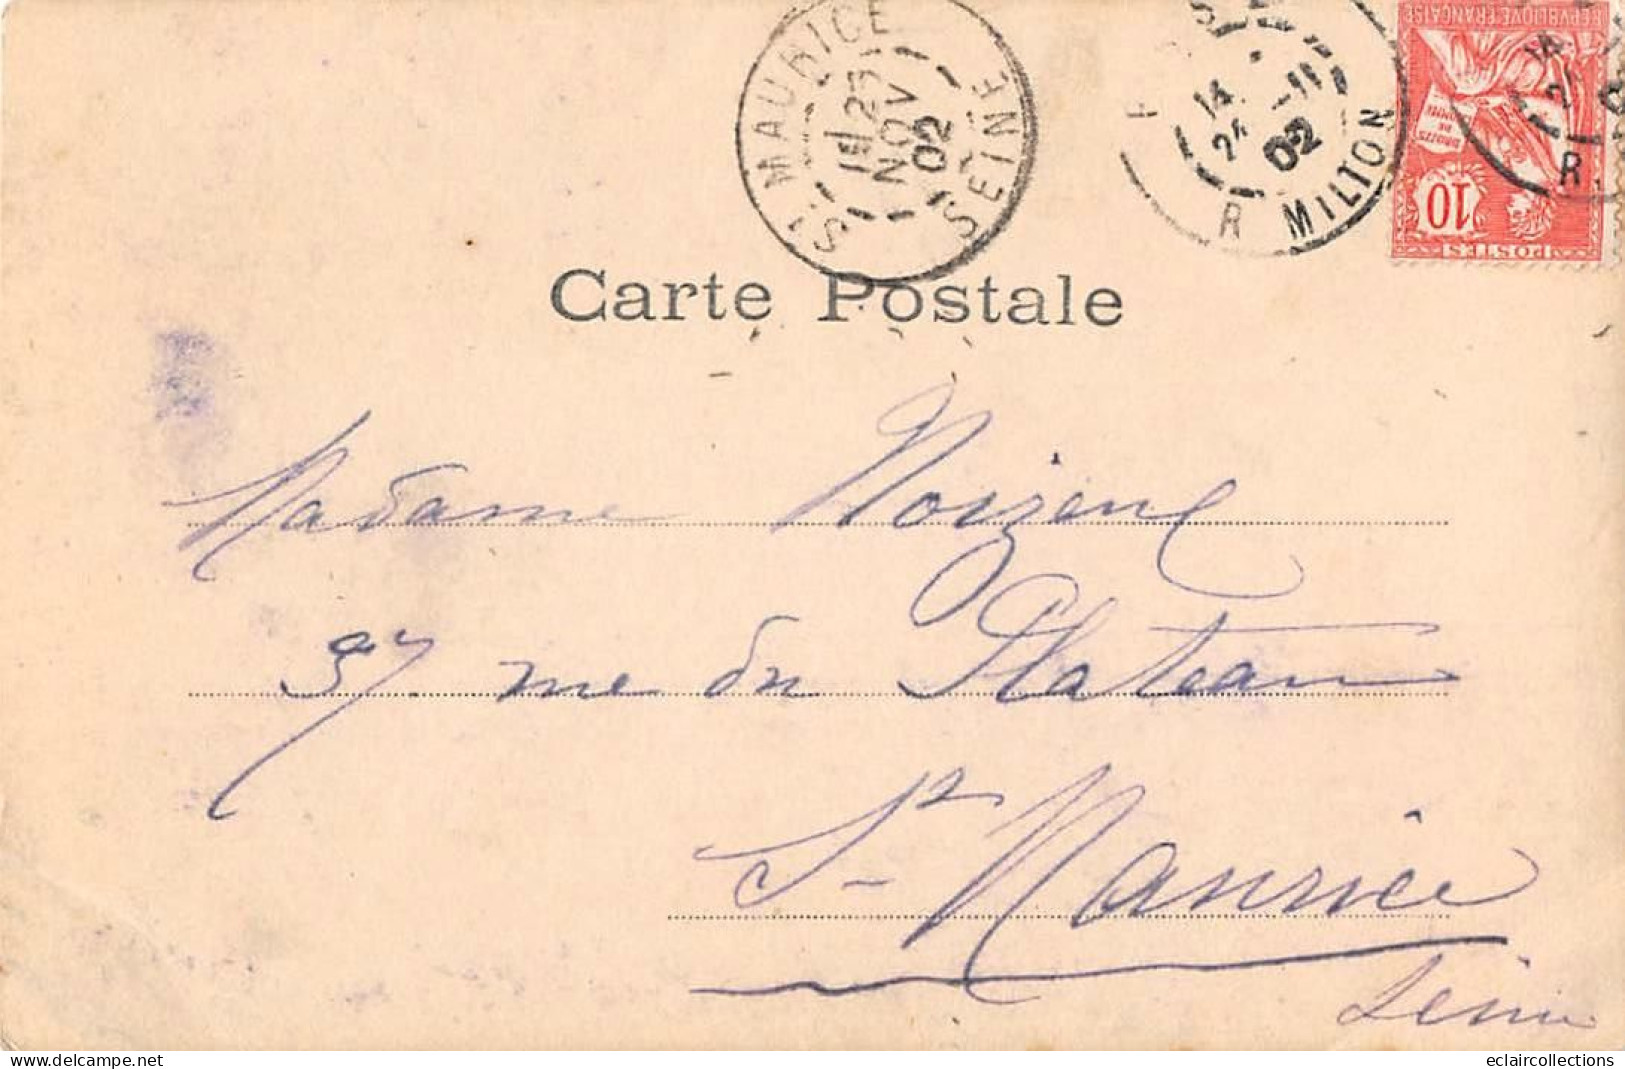 ST MAURICE
1E/25
NOV
02
SEINE
14
24 -11
02
R MILTON
REPVBLIQVE FRANÇAISE
DROITS
DE
L'HOMME
10
POSTES
R.
Carte Postale
Madame Noizene
37 rue du Plateau
St Maurice
Seine
eclaircollections